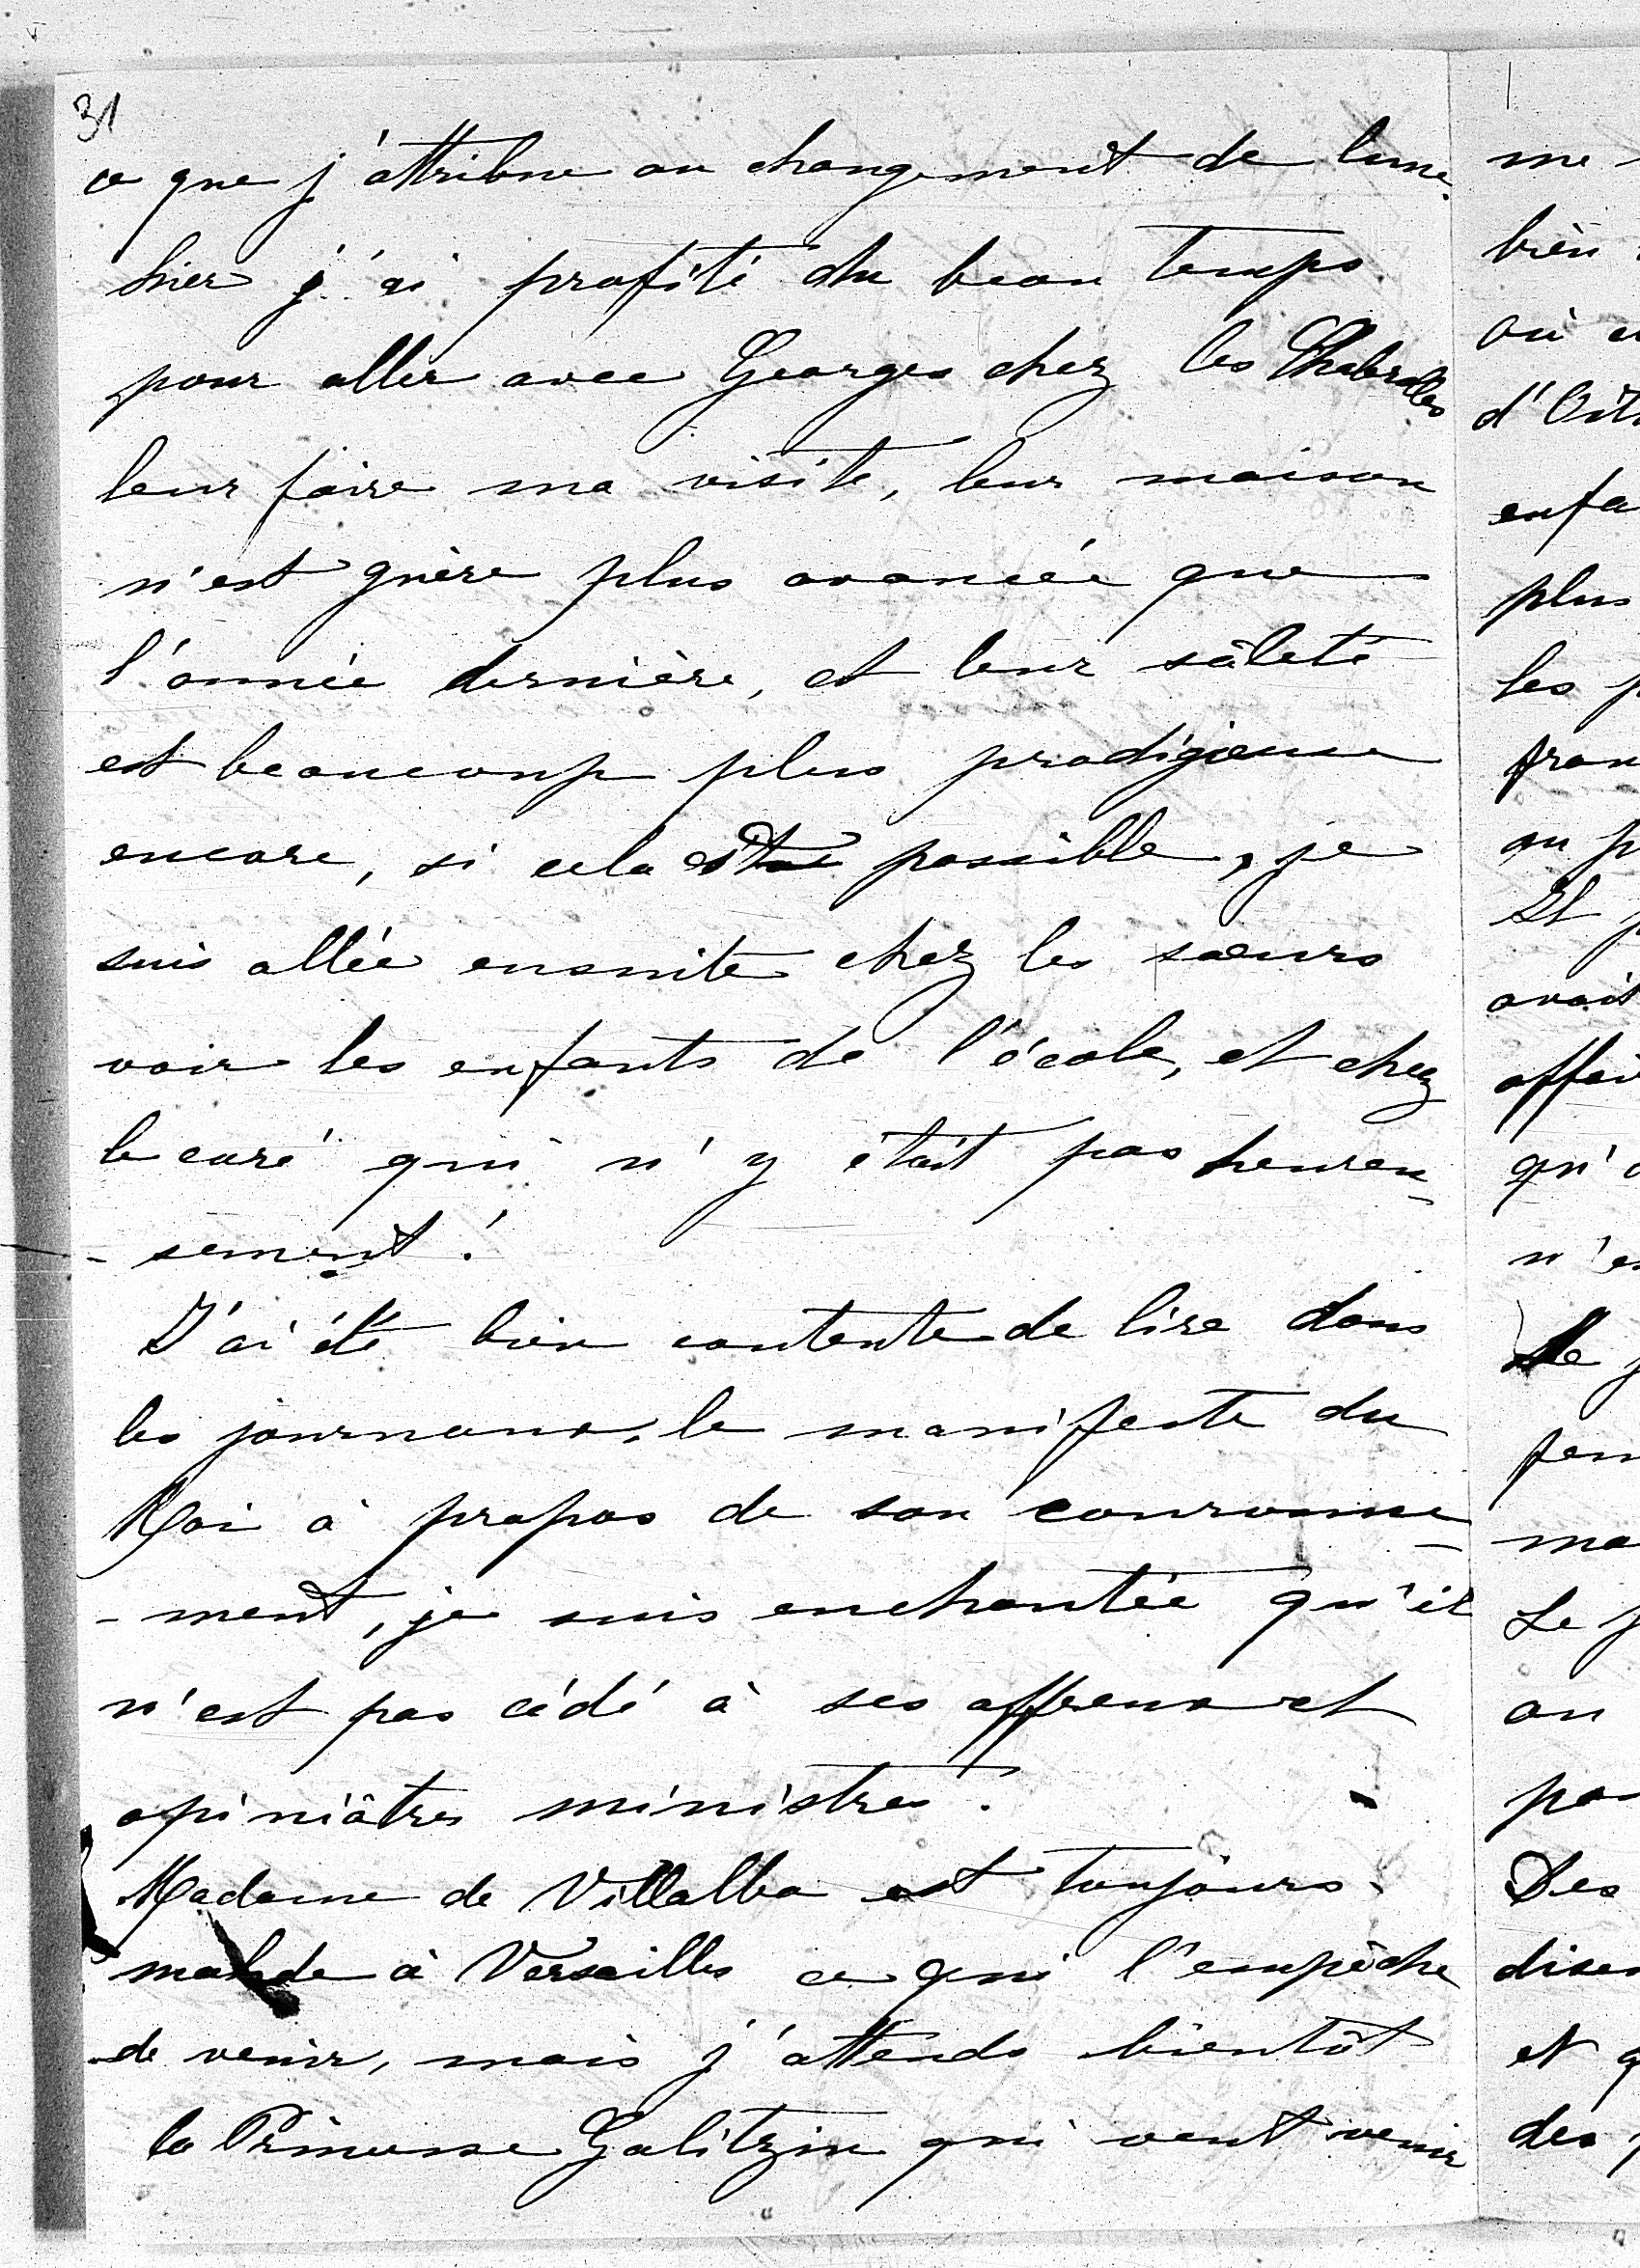 31
ce que j'attribue au changement de lune.
hier j'ai profité du beau temps
pour aller avec Georges chez les Chabrolles
leur faire ma visite, leur maison
n'est guère plus avancée que
l'année dernière, et leur sâleté
est beaucoup plus prodigieuse
encore, si cela est possible, je
suis allée ensuite chez les sœurs
voir les enfants de l'école, et chez
le curé qui n'y était pas heureu-
-sement!
J'ai été bien contente de lire dans
les journaux, le manifeste du
Roi à propos de son couronne-
-ment, je suis enchantée qu'il
n'est pas cédé à ses affreux et
opiniâtres ministres.
Madame de Villalba est toujours
malade à Versailles ce qui l'empêche
de venir, mais j'attends bientôt
la Princesse Galitzin qui veut venir
me
bien
où
enfa
plus
les
fran
au
Et
avait
affai
qu'
n'es
Le
fem
ma
Le
on
pas
Des
disen
et q
des